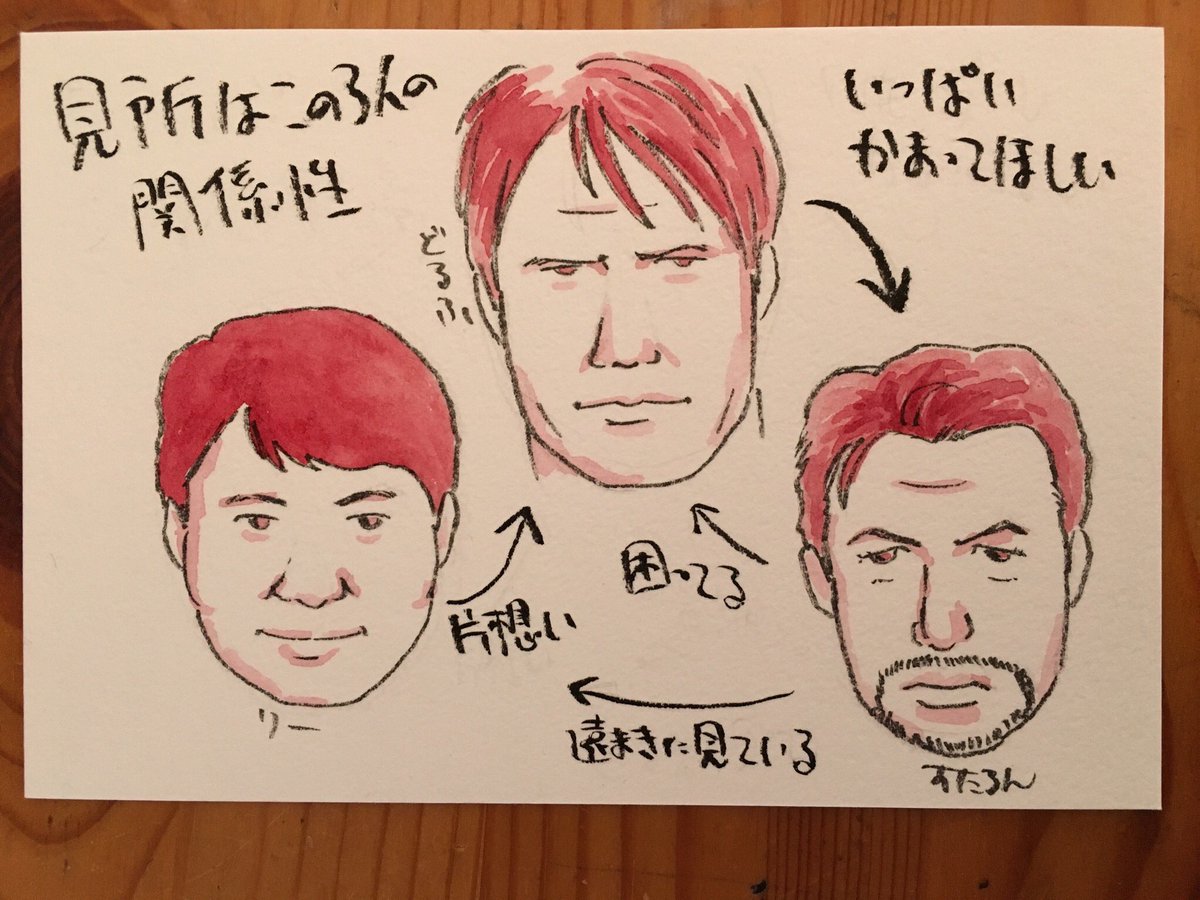 見所はこの3人の
関係性
いっぱい
かまってほしい
どるふ
困ってる
片想い
遠まきに見ている
リー
すたろん